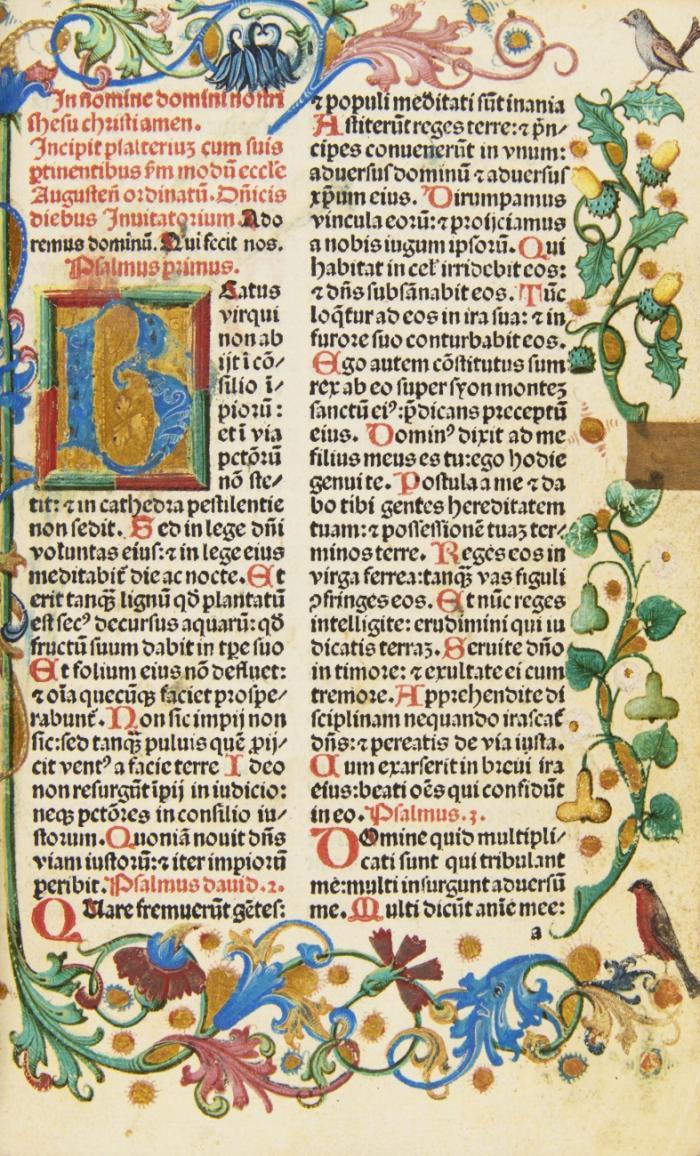 In nomine domini nostri
Jhesu christi amen.
Incipit psalteriuʒ cum suis
ꝑtinentibus ẜm modū eccl̄e
Augusteñ ordinatū. Dñicis
diebus Inuitatorium Ado
remus dominū. Qui fecit nos.
Psalmus primus.
Beatus
vir qui
non ab
ijt i cō⸗
silio i⸗
piorū:
et i via
pctōrū
nō ste⸗
tit: ⁊ in cathedra pestilentie
non sedit. Sed in lege dn̄i
voluntas eius: ⁊ in lege eius
meditabit̄ die ac nocte. Et
erit tanqꝫ lignū qd̄ plantatū
est secꝰ decursus aquarū: qd̄
fructū suum dabit in tp̄e suo
Et folium eius nō defluet:
⁊ oīa quecūqꝫ faciet prospe⸗
rabunt̄. Non sic impij non
sic: sed tanqꝫ puluis quē ꝓij⸗
cit ventꝰ a facie terre Ideo
non resurgūt īpij in iudicio:
neqꝫ pctōres in consilio iu⸗
storum. Quoniā nouit dn̄s
viam iustorū: ⁊ iter impiorū
peribit. Psalmus dauid .2.
Quare fremuerūt gētes:
⁊ populi meditati sūt inania
Astiterūt reges terre: ⁊ pn̄⸗
cipes conuenerūt in vnum:
aduersus dominū ⁊ aduersus
xp̄um eius. Dirumpamus
vincula eorū: ⁊ proijciamus
a nobis iugum ipsorū. Qui
habitat in cel̄ irridebit eos:
⁊ dn̄s subsānabit eos. Tūc
loq̄tur ad eos in ira sua: ⁊ in
furore suo conturbabit eos.
Ego autem cōstitutus sum
rex ab eo super syon monteʒ
sanctū eiꝰ: p̄dicans preceptū
eius. Dominꝰ dixit ad me
filius meus es tu: ego hodie
genui te. Postula a me ⁊ da
bo tibi gentes hereditatem
tuam: ⁊ possessionē tuaʒ ter⸗
minos terre. Reges eos in
virga ferrea: tanqꝫ vas figuli
ꝯfringes eos. Et nūc reges
intelligite: erudimini qui iu
dicatis terraʒ. Seruite dn̄o
in timore: ⁊ exultate ei cum
tremore. Apprehendite di
sciplinam nequando irascat̄
dn̄s: ⁊ pereatis de via iusta.
Cum exarserit in breui ira
eius: beati oēs qui confidūt
in eo. Psalmus .3.
Domine quid multipli⸗
cati sunt qui tribulant
me: multi insurgunt aduersū
me. Multi dicūt anīe mee:
a